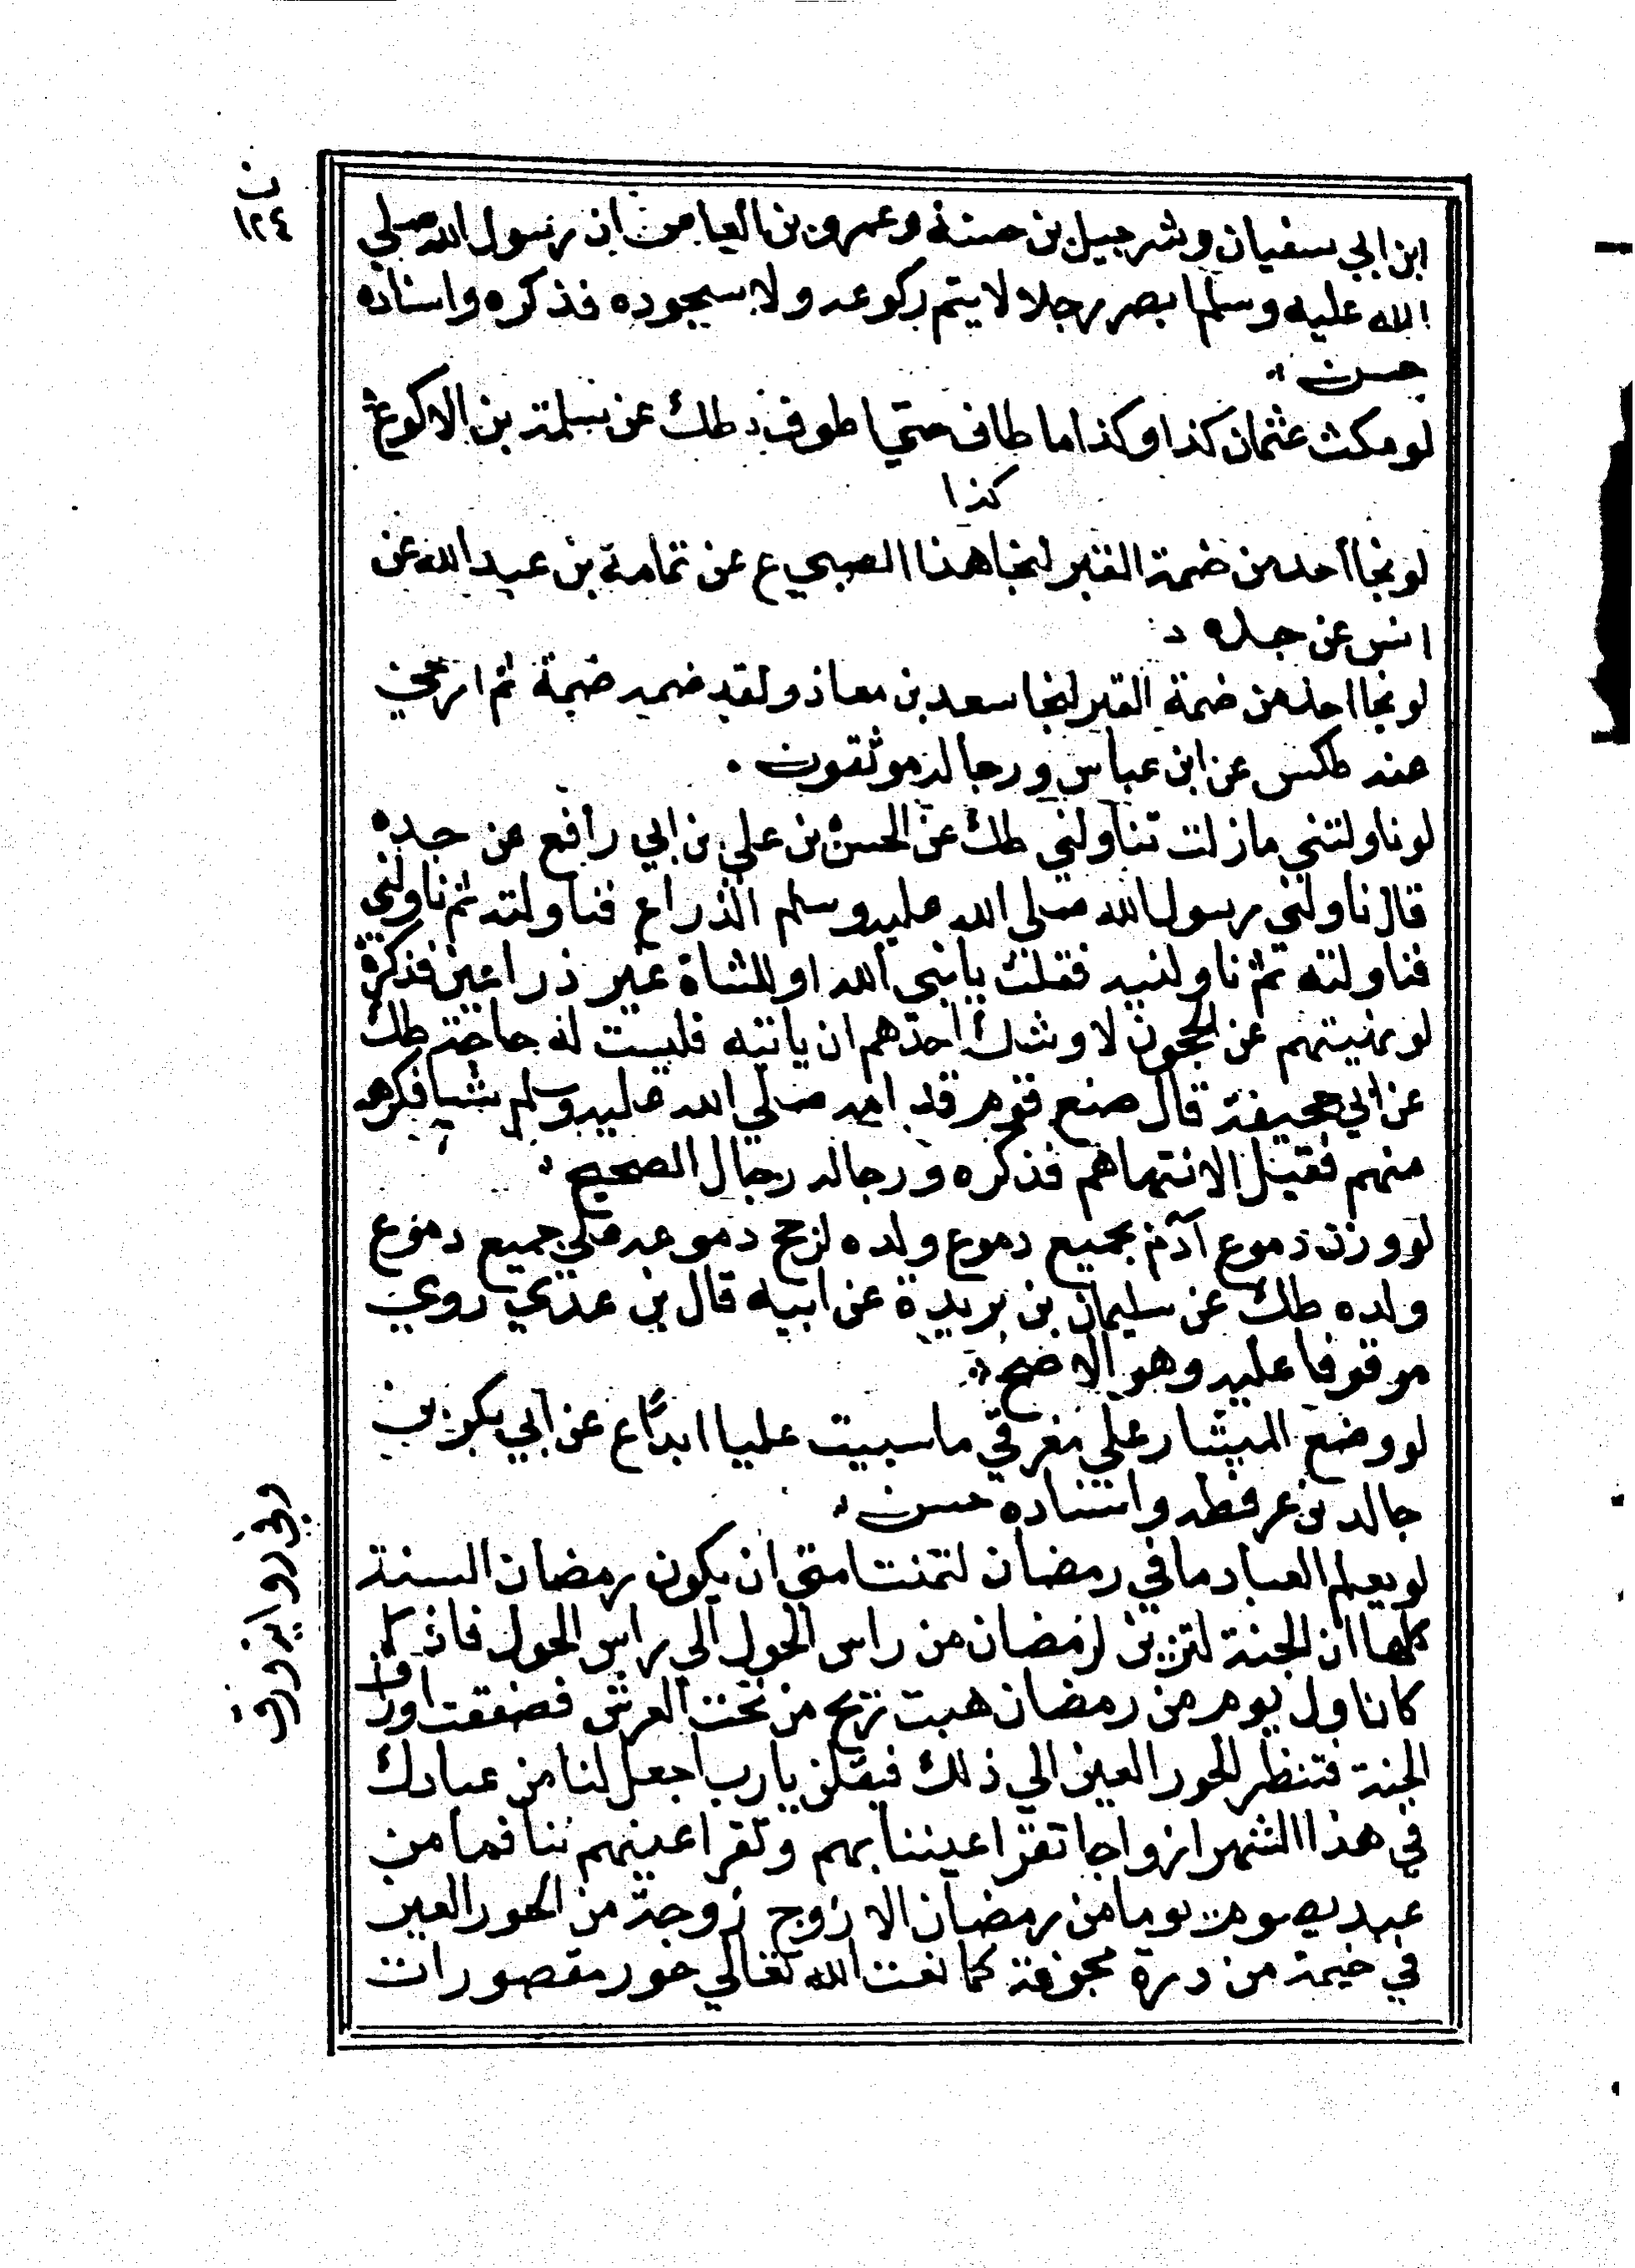 ن
١٢٤
ابن ابي سفيان وشرحبيل بن حسنة وعمرو بن العاص ان رسول الله صلي
الله عليه وسلم ابصر رجلا لا يتم ركوعه ولا سجوده فذكره واسناده
حسن
لو مكث عثمان كذا وكذا ما طاف حتي اطوف طك عن سلمة بن الاكوع
كذا
لو نجا احد من ضمة القبر لنجا هذا الصبي ع عن ثمامة بن عبد الله عن
انس عن جده
لو نجا احد من ضمة القبر لنجا سعد بن معاذ ولقد ضم ضمة ثم ارخي
عنه طكس عن ابن عباس ورجاله موثقون
لو ناولتني مازلت تناولني طك عن الحسن بن علي بن ابي رافع عن جده
قال ناولني رسول الله صلي الله عليه وسلم الذراع فناولته ثم ناولني
فناولته ثم ناولنيه فقلت يا نبي الله او للشاة غير ذراعين فذكره
لو نهيتهم عن الحجون لاوشك احدهم ان ياتيه فليست له حاجة طك
عن ابي جحيفة قال صنع قوم صلي الله عليه وسلم شيا فكرهه
منهم فقيل الا نتهاهم فذكره ورجاله رجال الصحيح
لو وزن دموع آدم بجميع دموع ولده لرجح دموعه علي جميع دموع
ولده طك عن سليمان بن بريدة عن ابيه قال بن عدي روي
موقوفا عليه وهو الاصح
لو وضع المنشار علي مفرقي ما سببت عليا ابدا ع عن ابي بكر بن
خالد بن عرفطه واسناده حسن
لو يعلم العباد ما في رمضان لتمنت امتي ان يكون رمضان السنة
كلها ان الجنة لتزين لرمضان من راس الحول الي راس الحول فاذا
كان اول يوم من رمضان هبت ريح من تحت العرش فصفقت اوراق
الجنة فتنظر الحور العين الي ذلك فيقلن يا رب اجعل لنا من عبادك
في هذا الشهر ازواجا تقر اعيننا بهم وتقر اعينهم بنا فما من
عبد يصوم يوما من رمضان الا زوج زوجة من الحور العين
في خيمة من درة مجوفة كما نعت الله تعالي حور مقصورات
وفي رواية ورق